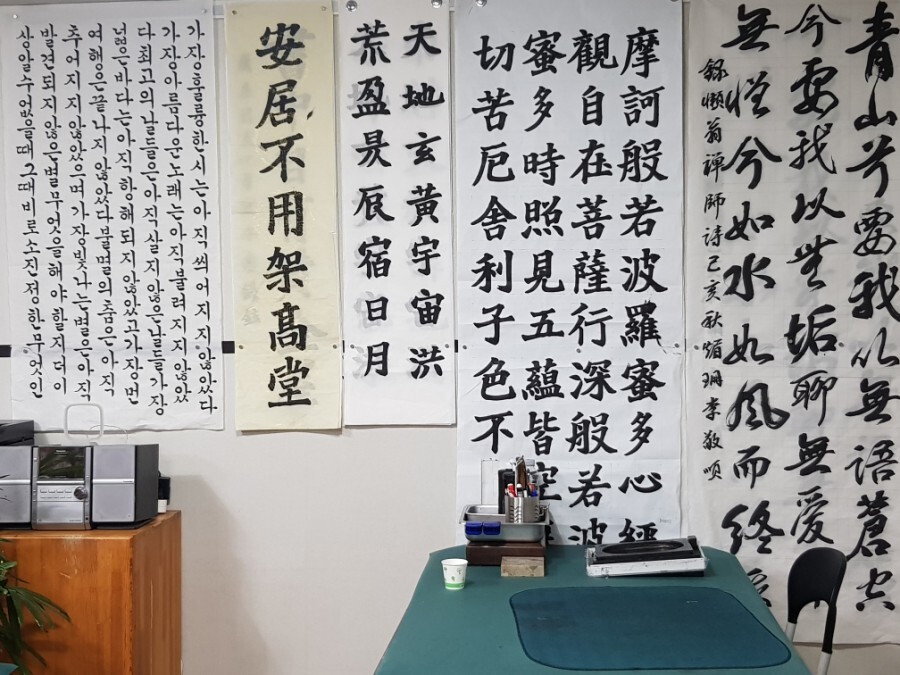 青山兮要我以無語蒼空
兮要我以無垢聊無愛
無憎兮如水如風而終
錄懶翁禪師詩己亥秋媚珊李敬順
摩訶般若波羅蜜多心經
觀自在菩薩行深般若波
蜜多時照見五蘊皆空
切苦厄舍利子色不
天地玄黃宇宙洪
荒盈昃辰宿日月
安居不用架髙堂
가장훌륭한시는아직씌어지지않았다
가장아름다운노래는아직불려지지않았
다최고의날들은아직살지않은날들가장
넓은바다는아직항해되지않았고가장먼
여행은끝나지않았다불멸의춤은아직
추어지지않았으며가장빛나는별은아직
발견되지않은별무엇을해야할지더이
상알수없을때그때비로소진정한무엇인